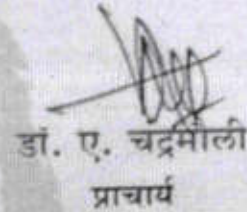 डां. ए. चद्रमौली
प्राचार्य